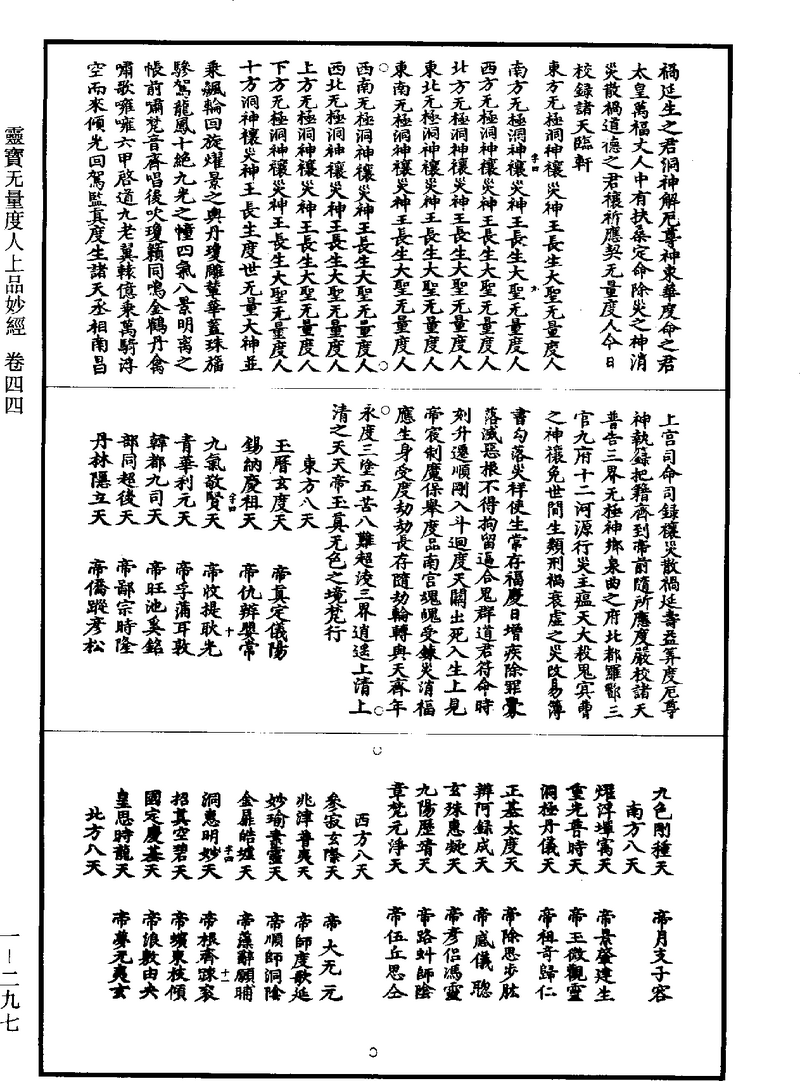 禍延生之君洞神解厄尊神東華度命之君
太皇萬福丈人中有扶桑定命除災之神消
災散禍道德之君禳祈應契无量度人今日
校錄諸天臨軒
東方无極洞神禳災神王長生大聖无量度人
南方无極洞神禳災神王長生大聖无量度人
西方无極洞神禳災神王長生大聖无量度人
北方无極洞神禳災神王長生大聖无量度人
東北无極洞神禳災神王長生大聖无量度人
東南无極洞神禳災神王長生大聖无量度人
西南无極洞神禳災神王長生大聖无量度人
西北无極洞神禳災神王長生大聖无量度人
上方无極洞神禳災神王長生大聖无量度人
下方无極洞神禳災神王長生大聖无量度人
十方洞神禳災神王長生度世无量大神並
乘飆輪回旋燿景之輿丹瓊雕輦華蓋珠旛
驂駕龍鳳十絕九光之幢四氣八景明离之
帳前嘯梵音齊唱後吹瓊籟同鳴金鶴丹禽
嘯歌嗈嗈六甲啓道九老翼轅億乘萬騎浮
空而來傾光回駕監真度生諸天丞相南昌
上宮司命司錄禳災散禍延壽益筭度厄尊
神執籙把籍齊到帝前隨所應度嚴校諸天
普告三界无極神鄉泉曲之府北都羅酆三
官九府十二河源行災主瘟天大殺鬼賓曹
之神禳免世間生類刑禍衰虛之災改易簿
書勾落災祥使生常存福慶日增疾除罪釁
落滅惡根不得拘留逼合鬼群道君符命時
刻升遷順剛入斗迴度天關出死入生上見
帝宸制魔保舉度品南宮魂魄受鍊災消福
應生身受度劫劫長存隨劫輪轉與天齊年
永度三塗五苦八難超淩三界逍遥上清上
清之天天帝玉真无色之境梵行
東方八天
王曆玄度天 帝真定儀陽
錫納慶祖天 帝仇辨嬰常
九氣敬賢天 帝忟提耿光
青華利元天 帝孚蒲耳敦
韓都九司天 帝旺池奚銘
部同超後天 帝鄙宗時隆
丹林隱立天 帝僑蹤彥松
九色剛種天 帝月支子容
南方八天
燿浮墠寓天 帝景肇建生
重光普時天 帝王微觀靈
洞極丹儀天 帝祖奇歸仁
正基太度天 帝除思步肱
辨阿錄成天 帝感儀聰
玄殊惠凝天 帝彥侶馮靈
九陽歷靖天 帝路虯師陰
章梵元淨天 帝伍丘思仚
西方八天
參寂玄際天 帝大无元
兆津普夷天 帝師度歌延
妙瑜素靈天 帝順師洞陰
金扉皓墟天 帝藻辭願晡
洞惠明妙天 帝根齊踈衮
招真空碧天 帝擴東枝傾
國定慶基天 帝浪敷由央
皇思時龍天 帝夢元夷玄
北方八天
靈寶无量度人上品妙經 卷四四
一—二九七